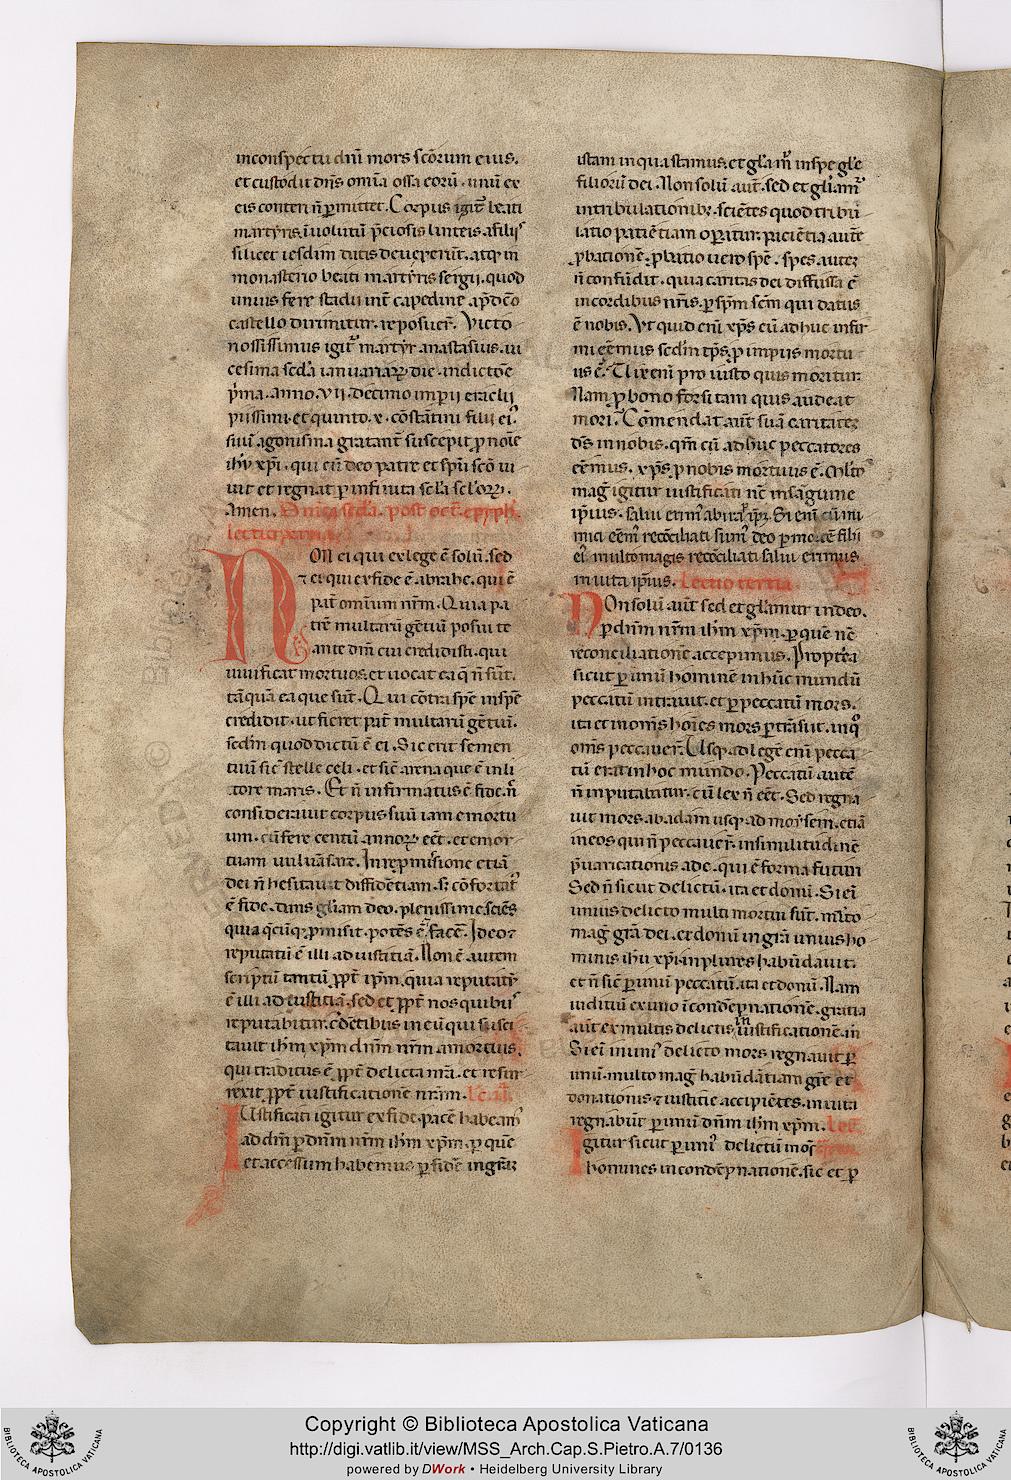 inconspectu dñi mors sc̃orum eius.
et custodit dñs om̃ia ossa eorũ. unũ ex
eis conteri ñ ꝑmittet. Corpus igit᷑ beati
martyris ĩuolutũ p̃ciosis linteis a filijs
silicet iesdim ductis
monasterio beati martyris sergij. quod
unius fere stadii int̃ capedine
castello dirimitur. reposuer̃. Victo
riosissimus igit᷑ martyr anastasius. ui
cesima sc̃da ianuariaꝝ die. indictõe
p̃ma. anno. VII. decimo imp̃ii eraclij
piissimi. et quinto. x. cõstãtini filii ei᷒.
suũ agonisma suscepit ꝓ noĩe
ih̃u xp̃i. qui cũ deo patre et sp̃u sc̃o ui
uit et regnat ꝑ infinita sc̃la sc̃loꝝ.
Amen. D̃nica sc̃da. post oct̃. epyph̃.
lectio prima
NON ei qui ex lege ẽ solũ. sed
⁊ ei qui ex fide ẽ abrahe. qui ẽ
pat̃ omnium nr̃m. Quia pa
trẽ multarũ gẽtiũ posui te
ante dñm cui credidisti. qui
uiuificat mortuos. et uocat ea q̃ ñ sũt.
tãquã ea que sũt. Qui cõtra spẽ in spẽ
credidit. ut fieret pat̃ multarũ gẽtiũ.
scd̃m quod dictũ ẽ ei. Sic erit semen
tuũ sic̃ stelle celi. et sic̃ arena que ẽ in li
tore maris. Et ñ infirmatus ẽ fide. ñ
consideravit corpus suũ iam emortu
um. cũ fere centũ annoꝝ eẽt. et emor
tuam uuluã sare. In repromissione etiã
dei ñ hesitauit diffidẽtiam. s; cõfortat᷒
ẽ fide. dans gl̃iam deo. plenissime sciẽs
quia q̃cũq; ꝓmisit. potẽs ẽ facẽ. Ideo ⁊
reputatũ ẽ illi ad iustitiã. Non ẽ autem
scriptũ tantũ ꝓpt̃ ipm̃. quia reputatũ
ẽ illi ad iustitiã. sed et ꝓpt̃ nos quibus
reputabitur. c̃dẽtibus in eũ qui susci
tauit ih̃m xp̃m dñm nr̃m a mortuis.
qui traditus ẽ ꝓpt̃ delicta nr̃a. et resur
rexit ꝓpt̃ iustificationẽ nr̃am. Lc̃. ii.
IUstificati igitur ex fide. pacẽ habeam᷒
ad dm̃ ꝑ dñm nr̃m ih̃m xp̃m. ꝑ quẽ
et accessum habemus ꝑ fidẽ in gr̃am
istam in qua stamus. et gl̃amur in spe gl̃e
filiorũ dei. Non solũ aut̃. sed et gl̃amur
in tribulationib;. sciẽtes quod tribu
latio patiẽtiam oꝑatur. paciẽtia autẽ
ꝓbationẽ. ꝓbatio uero spẽ. spes autem
ñ confũdit. quia caritas dei diffussa ẽ
in cordibus nr̃is. ꝑ sp̃m sc̃m qui datus
ẽ nobis. Ut quid eni xp̃s cũ adhuc infir
mi eẽmus scd̃m tp̃s. ꝓ impijs mortu
us ẽ. Ui x eni pro iusto quis moritur.
Nam ꝓ bono forsitam quis audeat
mori. Cõmendat aut̃ suã caritatem
ds̃ in nobis. qm̃ cũ adhuc peccatores
eẽmus. xp̃s ꝓ nobis mortuus ẽ. Mlto
mag̃ igitur iustificati nc̃ in sãguine
ip̃ius. salui erim᷒ ab ira ꝑ ip̃m. Si eni cũ ini
mici eẽm᷒ recõciliati sum᷒ deo ꝑ mortẽ filii
ei᷒. multo magis recõciliati salui erimus
in uita ip̃ius. Lectio tertia.
NOn solũ aut̃ sed et gl̃amur in deo.
ꝑ dñm nr̃m ih̃m xp̃m. ꝑ quẽ nc̃
reconciliationẽ accepimus. Propterea
sicut ꝑ unũ hominẽ in hũc mundũ
peccatũ intrauit. et ꝑ peccatũ mors.
ita et in om̃s hoĩes mors ꝑtrãsiit. in q̊
om̃s peccauer̃. Usq; ad legẽ eni pecca
tũ erat in hoc mundo. Peccatũ autẽ
ñ inputabatur. cũ lex ñ eẽt. Sed regna
uit mors. ab adam usq; ad moysem. etiã
in eos qui ñ peccauer̃. in similitudinẽ
p̃uaricationis ade. qui ẽ forma futuri
Sed ñ sicut delictũ. ita et donũ. Si ei
unius delicto multi mortui sũt. mlto
mag̃ gr̃a dei. et donũ in gr̃a unius ho
minis ih̃u xp̃i. in plures habũdauit.
et ñ sic̃ ꝑ unũ peccatũ. ita et donũ. Nam
iuditiũ ex uno ĩ condepnationẽ. gratia
aut̃ ex multis delictis. in iustificationẽ.
Si ei in uni᷒ delicto mors regnauit ꝑ
unũ. multo mag̃ habũdãtiam gr̃e et
donationis ⁊ iustitie accipiẽtes. in uita
regnabũt ꝑ unũ dñm ih̃m xp̃m. Lect̃.
Igitur sicut ꝑ uni᷒ delictũ in om̃s
homines in condepnationẽ. sic et ꝑ
Copyright © Biblioteca Apostolica Vaticana
http://digi.vatlib.it/view/MSS_Arch.Cap.S.Pietro.A.7/0136
powered by DWork • Heidelberg University Library
BIBLIOTECA APOSTOLICA VATICANA
BIBLIOTECA APOSTOLICA VATICANA